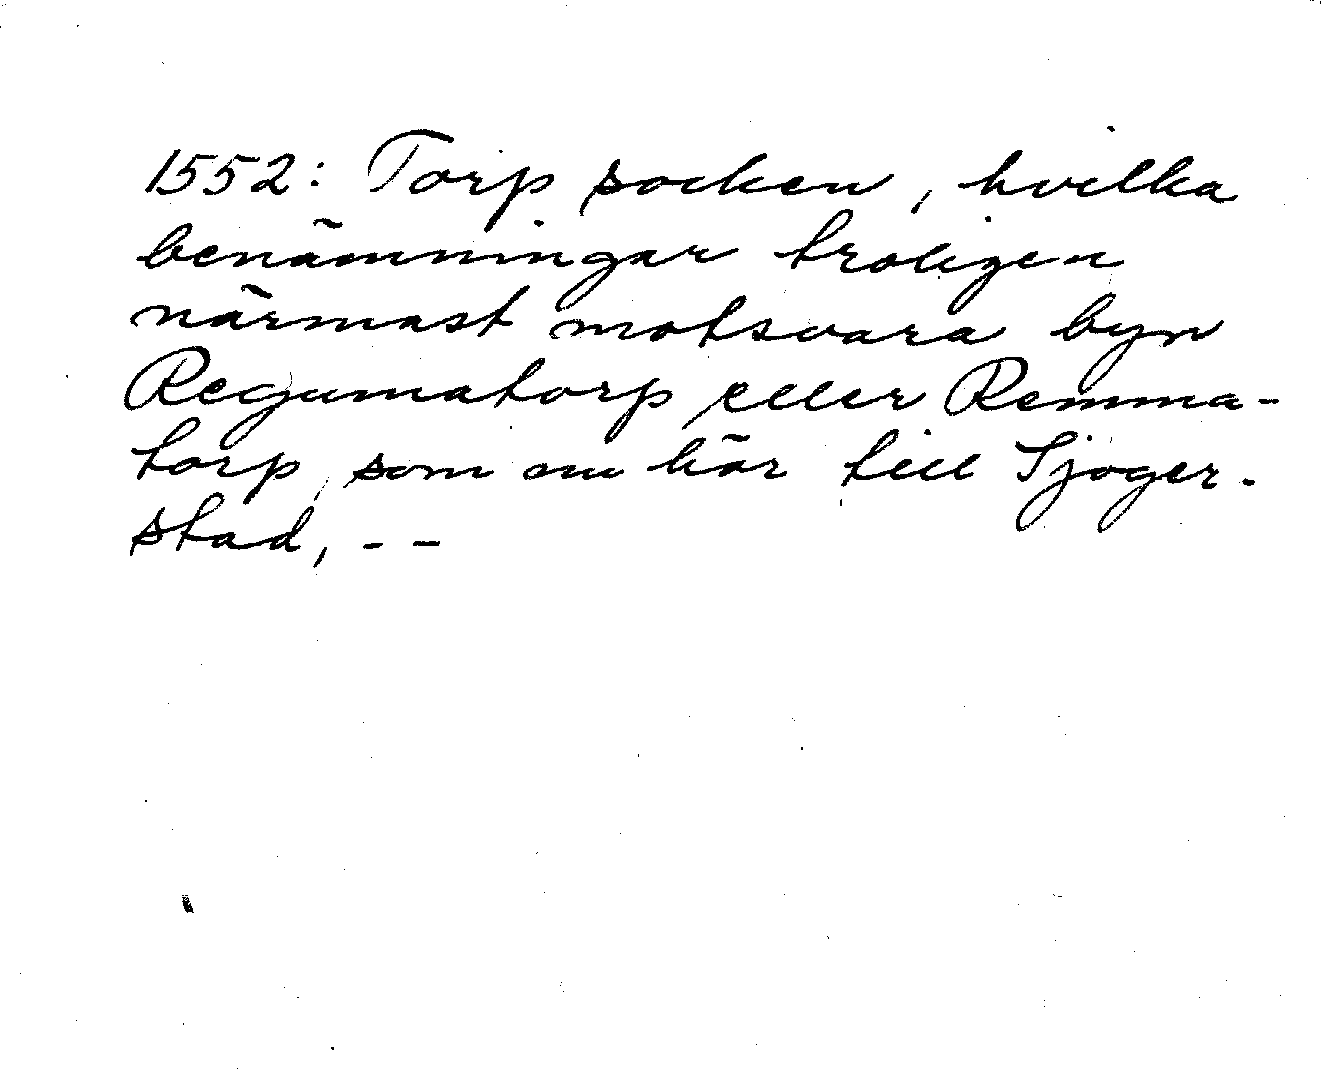 1552: Torp socken, hvilka
benämningar troligen
närmast motsvara byn
Regumatorp eller Remma-
torp, som nu hör till Sjoger-
stad, --